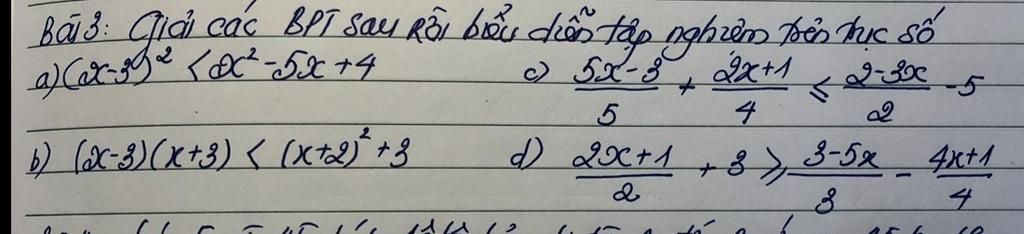 Bài 3: Giải các BPT sau rồi biểu diễn tập nghiệm trên trục số
a) (x-3)² < x² -5x +4
c) (5x-3)/5 + (2x+1)/4 ≤ (2-3x)/2 -5
b) (x-3)(x+3) < (x+2)² +3
d) (2x+1)/2 + 3 ≥ (3-5x)/3 - (4x+1)/4